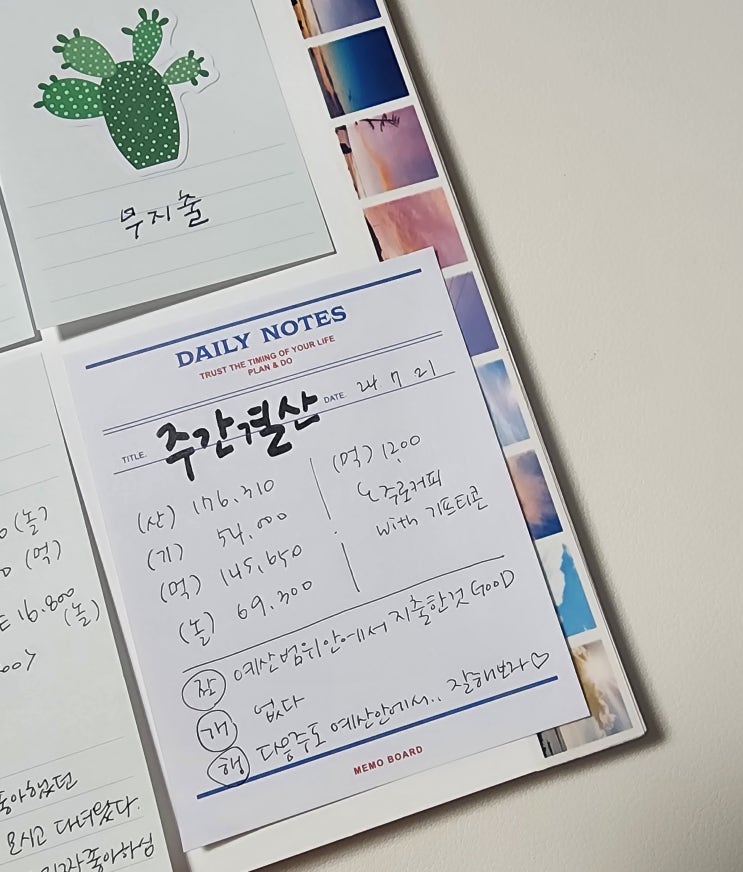 무지출
DAILY NOTES
TRUST THE TIMING OF YOUR LIFE
PLAN & DO
TITLE. 주간결산 DATE. 24 7 21
(산) 176.310
(기) 54.000
(먹) 145,650
(놀) 69.300
(먹) 1200
주로커피
with 기프티콘
잘 예산범위안에서 지출한것 GOOD
개 없다
행 다음주도 예산안에서.. 잘해보자♡
MEMO BOARD
(놀)
(먹)
16.800
(놀)
좋아했던
모시고 다녀왔다.